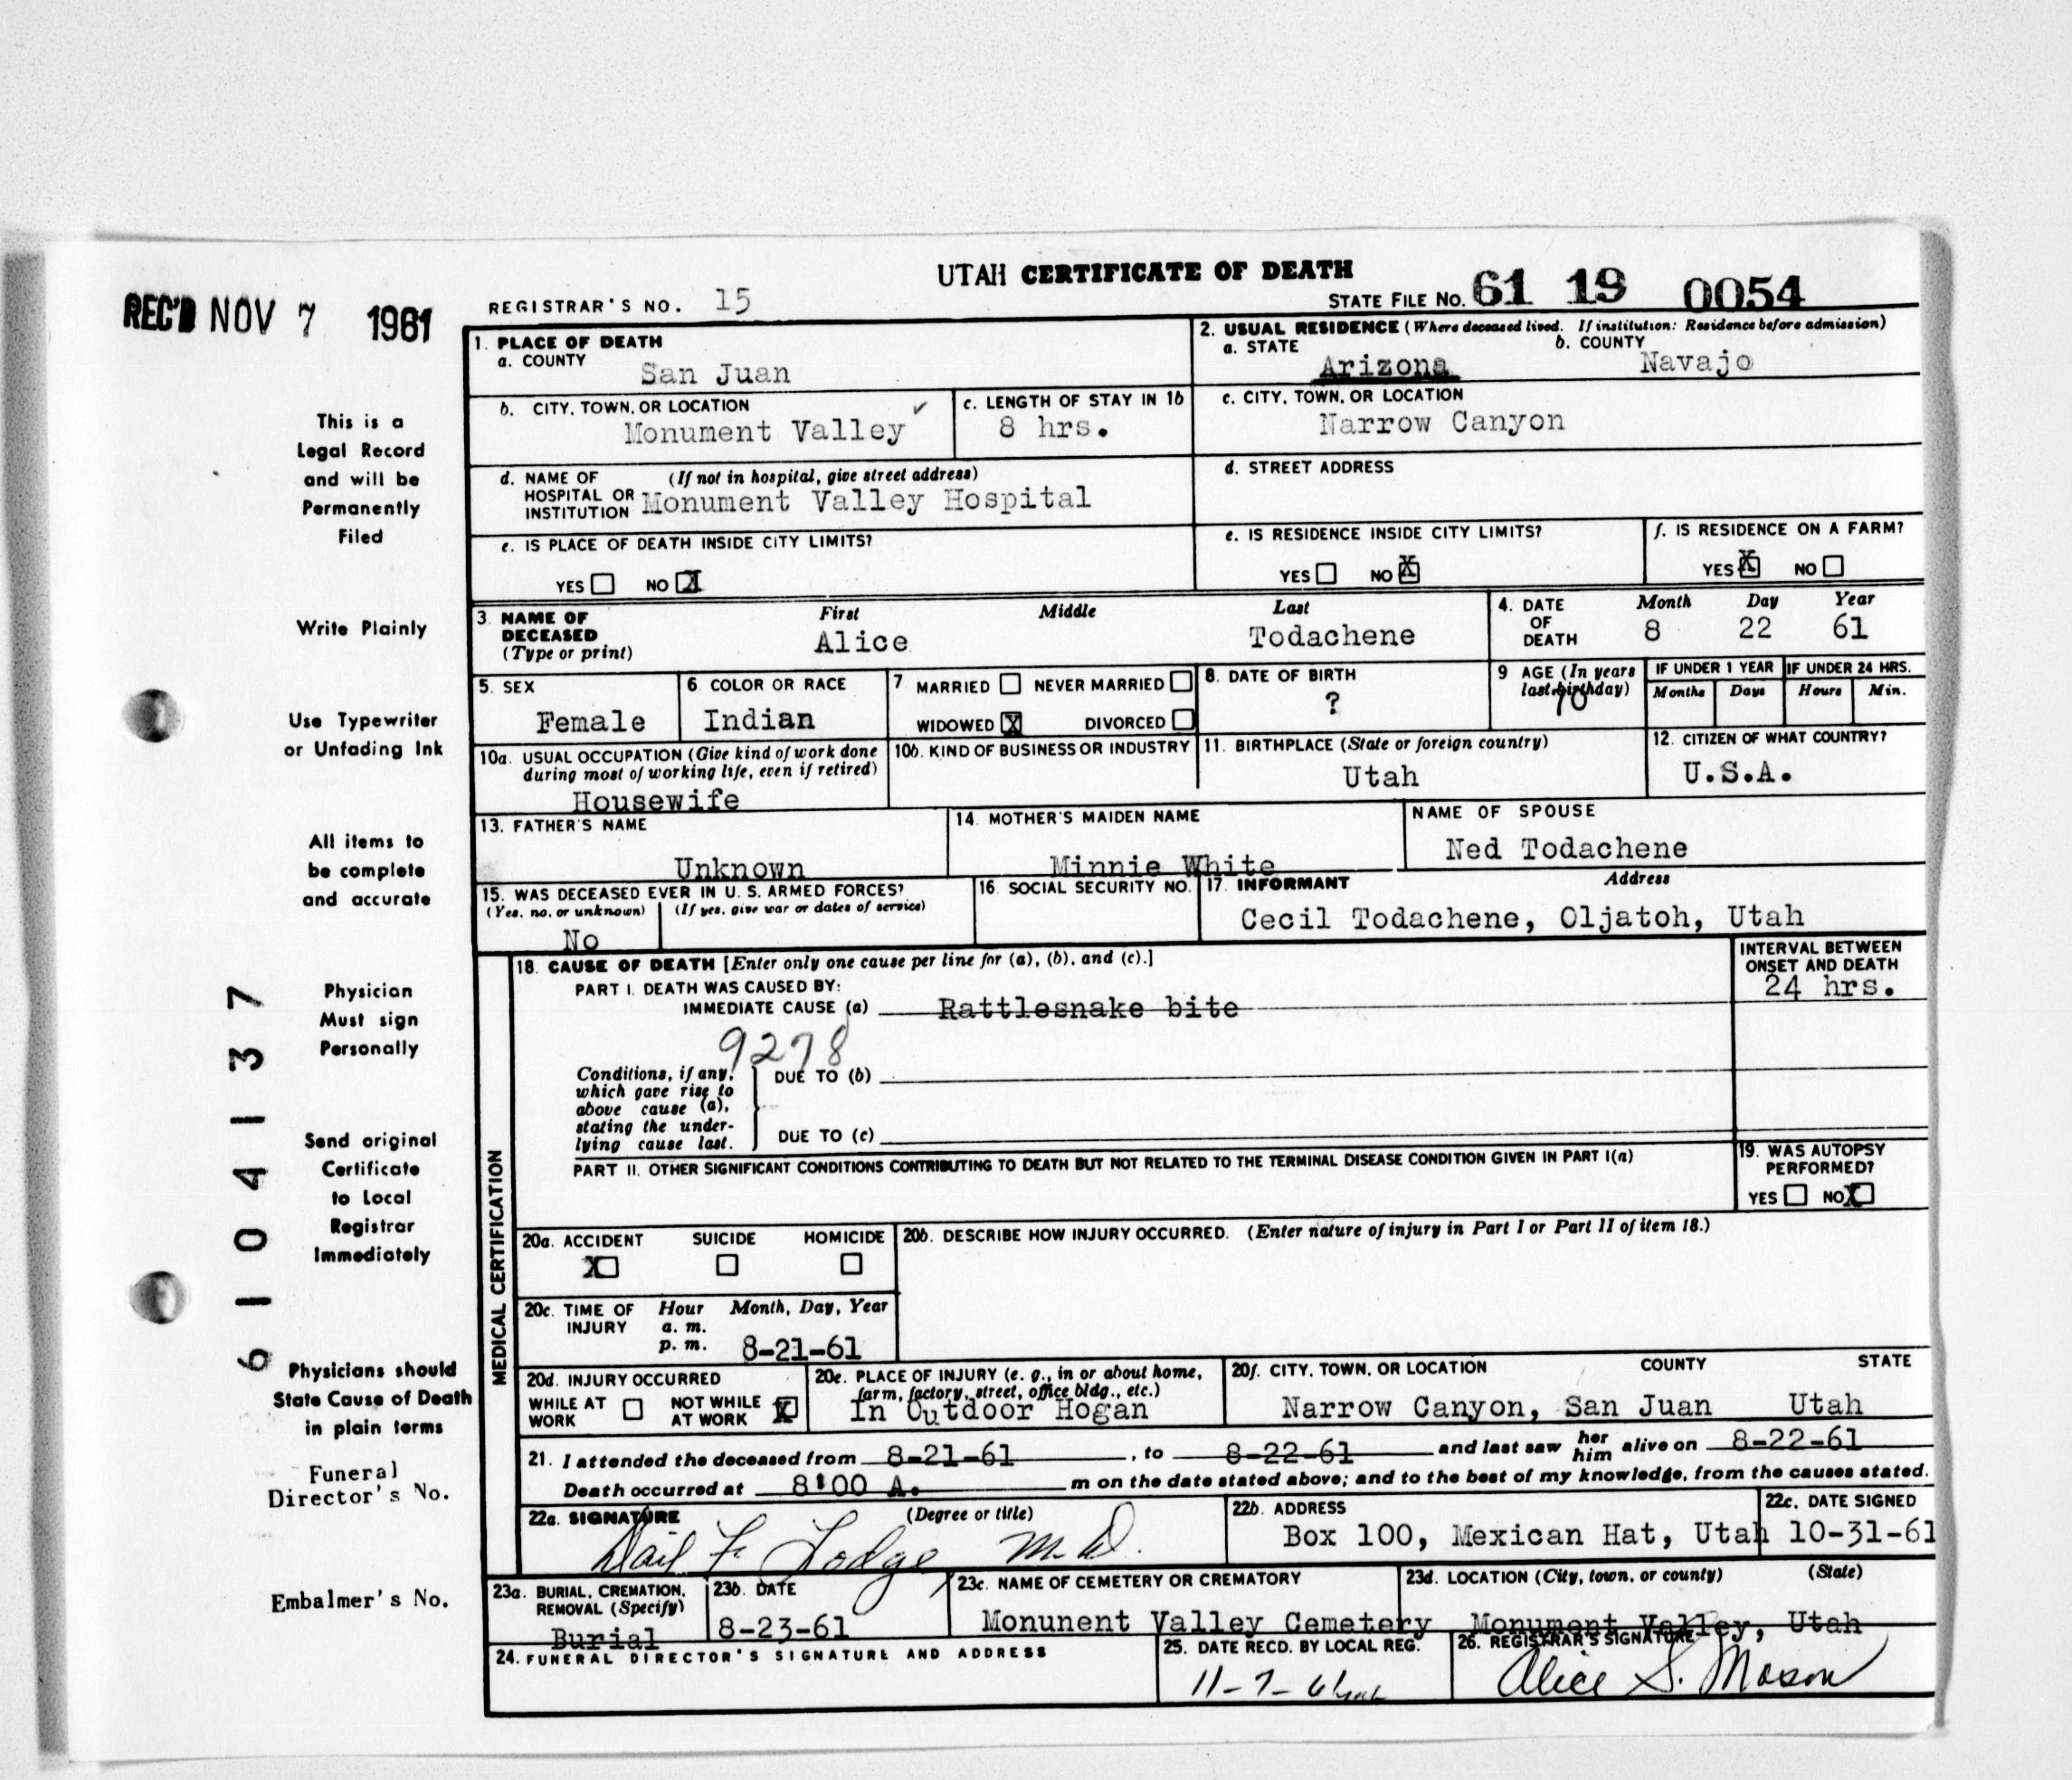 UTAH CERTIFICATE OF DEATH
REC'D NOV 7 1961
REGISTRAR'S NO. 15
STATE FILE No. 61 19 0054
1. PLACE OF DEATH
a. COUNTY
San Juan
2. USUAL RESIDENCE (Where deceased lived. If institution: Residence before admission)
a. STATE b. COUNTY
Arizona Navajo
b. CITY, TOWN, OR LOCATION ✓
Monument Valley
c. LENGTH OF STAY IN 1b
8 hrs.
c. CITY, TOWN, OR LOCATION
Narrow Canyon
d. NAME OF (If not in hospital, give street address)
HOSPITAL OR
INSTITUTION Monument Valley Hospital
d. STREET ADDRESS
e. IS PLACE OF DEATH INSIDE CITY LIMITS?
YES NO X
e. IS RESIDENCE INSIDE CITY LIMITS?
YES NO X
f. IS RESIDENCE ON A FARM?
YES X NO
3. NAME OF DECEASED (Type or print)
First Middle Last
Alice Todachene
4. DATE OF DEATH
Month Day Year
8 22 61
5. SEX
Female
6. COLOR OR RACE
Indian
7 MARRIED NEVER MARRIED
WIDOWED X DIVORCED
8. DATE OF BIRTH
?
9 AGE (In years last birthday)
70
IF UNDER 1 YEAR
Months Days
IF UNDER 24 HRS.
Hours Min.
10a. USUAL OCCUPATION (Give kind of work done
during most of working life, even if retired)
Housewife
10b. KIND OF BUSINESS OR INDUSTRY
11. BIRTHPLACE (State or foreign country)
Utah
12. CITIZEN OF WHAT COUNTRY?
U.S.A.
13. FATHER'S NAME
Unknown
14. MOTHER'S MAIDEN NAME
Minnie White
NAME OF SPOUSE
Ned Todachene
15. WAS DECEASED EVER IN U. S. ARMED FORCES?
(Yes, no, or unknown) (If yes, give war or dates of service)
No
16. SOCIAL SECURITY NO.
17. INFORMANT Address
Cecil Todachene, Oljatoh, Utah
MEDICAL CERTIFICATION
18. CAUSE OF DEATH [Enter only one cause per line for (a), (b), and (c).]
PART I. DEATH WAS CAUSED BY:
IMMEDIATE CAUSE (a) Rattlesnake bite
INTERVAL BETWEEN
ONSET AND DEATH
24 hrs.
9278
Conditions, if any,
which gave rise to
above cause (a),
stating the under-
lying cause last.
DUE TO (b)
DUE TO (c)
PART II. OTHER SIGNIFICANT CONDITIONS CONTRIBUTING TO DEATH BUT NOT RELATED TO THE TERMINAL DISEASE CONDITION GIVEN IN PART I(a)
19. WAS AUTOPSY
PERFORMED?
YES NO X
20a. ACCIDENT SUICIDE HOMICIDE
X
20b. DESCRIBE HOW INJURY OCCURRED. (Enter nature of injury in Part I or Part II of item 18.)
20c. TIME OF INJURY
Hour Month, Day, Year
a. m.
p. m. 8-21-61
20d. INJURY OCCURRED
WHILE AT WORK NOT WHILE AT WORK X
20e. PLACE OF INJURY (e. g., in or about home,
farm, factory, street, office bldg., etc.)
In Outdoor Hogan
20f. CITY, TOWN, OR LOCATION COUNTY STATE
Narrow Canyon, San Juan Utah
21. I attended the deceased from 8-21-61, to 8-22-61 and last saw her him alive on 8-22-61
Death occurred at 8:00 A. m on the date stated above; and to the best of my knowledge, from the causes stated.
22a. SIGNATURE (Degree or title)
Dail F. Lodge M.D.
22b. ADDRESS
Box 100, Mexican Hat, Utah
22c. DATE SIGNED
10-31-61
23a. BURIAL, CREMATION,
REMOVAL (Specify)
Burial
23b. DATE
8-23-61
23c. NAME OF CEMETERY OR CREMATORY
Monunent Valley Cemetery
23d. LOCATION (City, town, or county) (State)
Monument Valley, Utah
24. FUNERAL DIRECTOR'S SIGNATURE AND ADDRESS
25. DATE RECD. BY LOCAL REG.
11-7-61
26. REGISTRAR'S SIGNATURE
Alice S. Mason
This is a
Legal Record
and will be
Permanently
Filed
Write Plainly
Use Typewriter
or Unfading Ink
All items to
be complete
and accurate
Physician
Must sign
Personally
Send original
Certificate
to Local
Registrar
Immediately
Physicians should
State Cause of Death
in plain terms
Funeral
Director's No.
Embalmer's No.
6104137